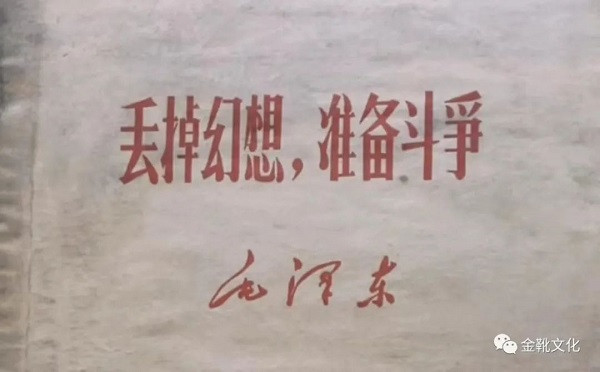 丢掉幻想，准备斗爭
毛泽东
金靴文化